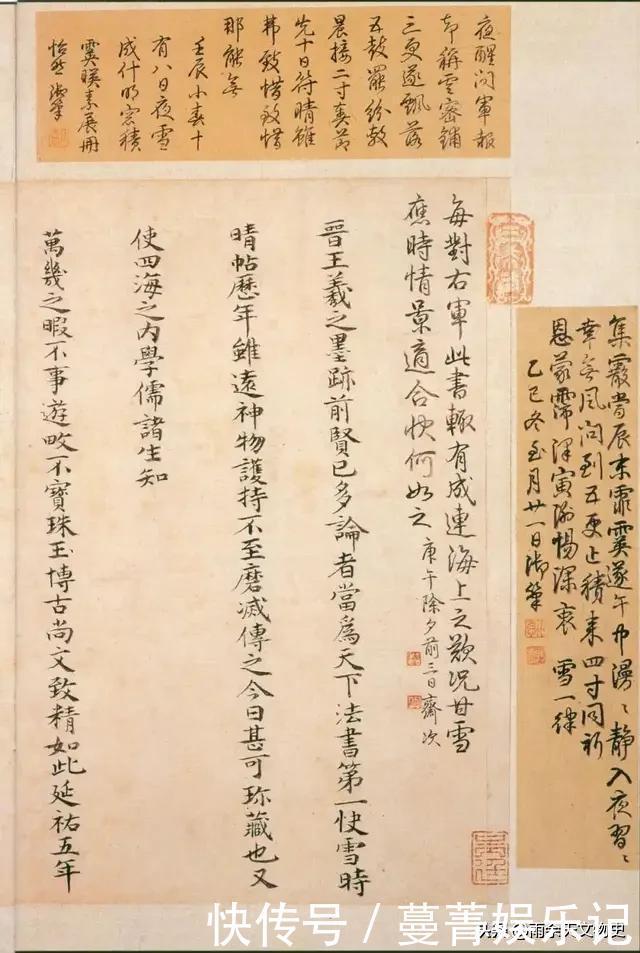 集霰当辰东霏霙遂午中漫〻静入夜習〻
幸无风问到五更止積来四寸同祈
恩蒙霈泽寅渝惕深衷 雪一律
乙巳冬至月廿一日御筆
每對右軍此書輒有成連海上之歎况甘雪
應時情景適合快何如之 庚午除夕前三日齋次
晋王羲之墨跡前賢已多論者當爲天下法書第一快雪時
晴帖歷年雖遠神物護持不至磨滅傳之今日甚可珎藏也又
使四海之内學儒諸生知
萬幾之暇不事遊畋不寶珠玉博古尚文致精如此延祐五年
夜醒问軍報
却稱雲密鋪
三更遂飘落
五鼓罷紛敷
晨接二寸奏節
先十日符晴雖
弗致惜致惜
那能無
壬辰小春十
有八日夜雪
成什明窓積
霙暎素展冊
怡然御筆
快传号 / 蔓菁娱乐记
头条@雨余天文物史